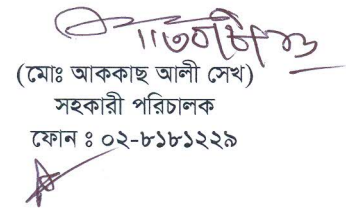 (মোঃ আককাছ আলী সেখ)
সহকারী পরিচালক
ফোন ঃ ০২-৮১৮১২২৯